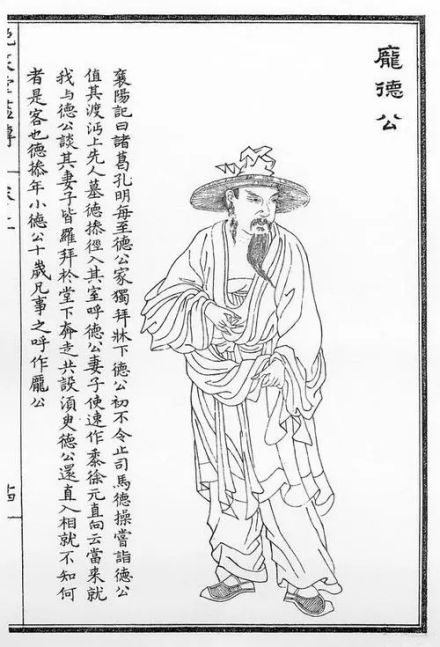 龐德公
襄陽記曰諸葛孔明每至德公家獨拜牀下德公初不令止司馬德操嘗詣德公
值其渡沔上先人墓德操徑入其室呼德公妻子使速作黍徐元直向云當来就
我与德公談其妻子皆羅拜於堂下奔走共設須臾德公還直入相就不知何
者是客也德操年小德公十歲凡事之呼作龐公